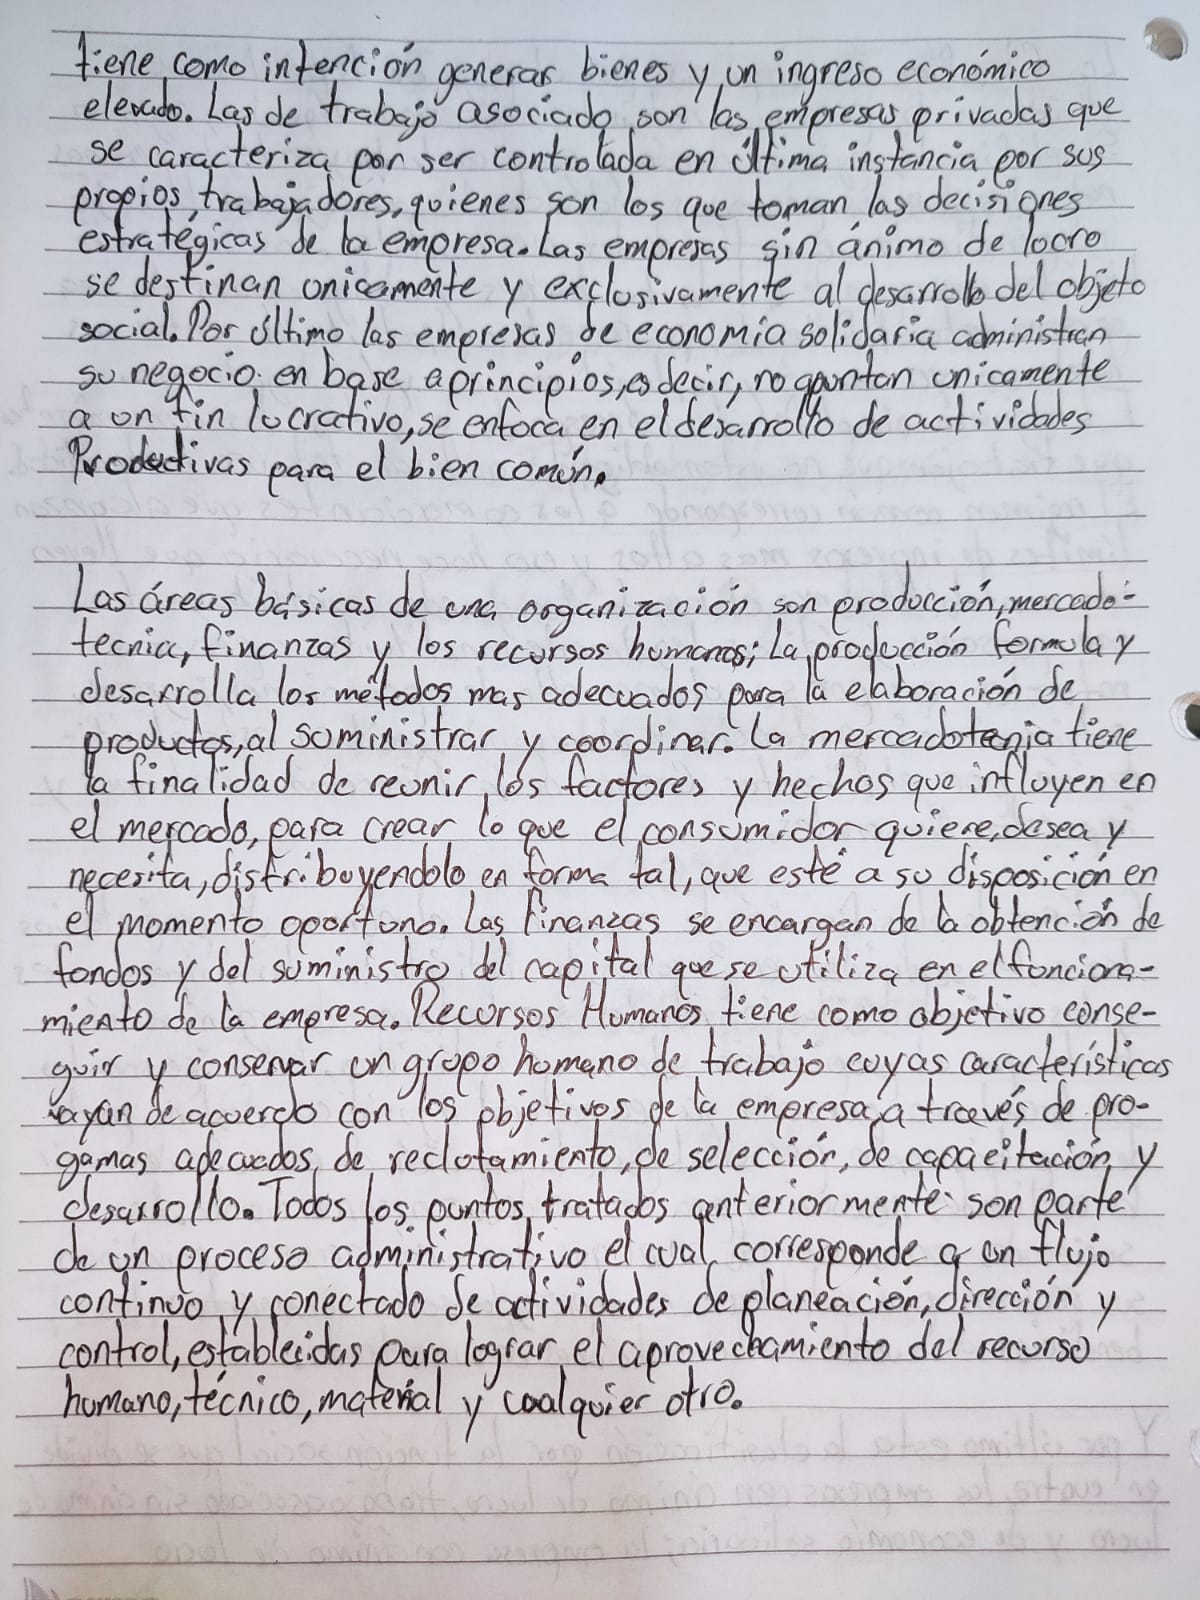 tiene como intención generar bienes y un ingreso económico
elevado. Las de trabajo asociado son las empresas privadas que
se caracteriza por ser controlada en última instancia por sus
propios trabajadores, quienes son los que toman las decisiones
estratégicas de la empresa. Las empresas sin ánimo de lucro
se destinan unicamente y exclusivamente al desarrollo del objeto
social. Por último las empresas de economía solidaria administran
su negocio en base a principios, es decir, no apuntan unicamente
a un fin lucrativo, se enfoca en el desarrollo de actividades
Productivas para el bien común.
Las áreas básicas de una organización son producción, mercado-
tecnia, finanzas y los recursos humanos; La producción formula y
desarrolla los métodos mas adecuados para la elaboración de
productos, al suministrar y coordinar. La mercadotecnia tiene
la finalidad de reunir los factores y hechos que influyen en
el mercado, para crear lo que el consumidor quiere, desea y
necesita, distribuyendolo en forma tal, que esté a su disposición en
el momento oportuno. Las finanzas se encargan de la obtención de
fondos y del suministro del capital que se utiliza en el funciona-
miento de la empresa. Recursos Humanos tiene como objetivo conse-
guir y conservar un grupo humano de trabajo cuyas características
vayan de acuerdo con los objetivos de la empresa, a través de pro-
gamas adecuados de reclutamiento, de selección, de capacitación y
desarrollo. Todos los puntos tratados anteriormente son parte
de un proceso administrativo el cual corresponde a un flujo
continuo y conectado de actividades de planeación, dirección y
control, establecidas para lograr el aprovechamiento del recurso
humano, técnico, material y cualquier otro.